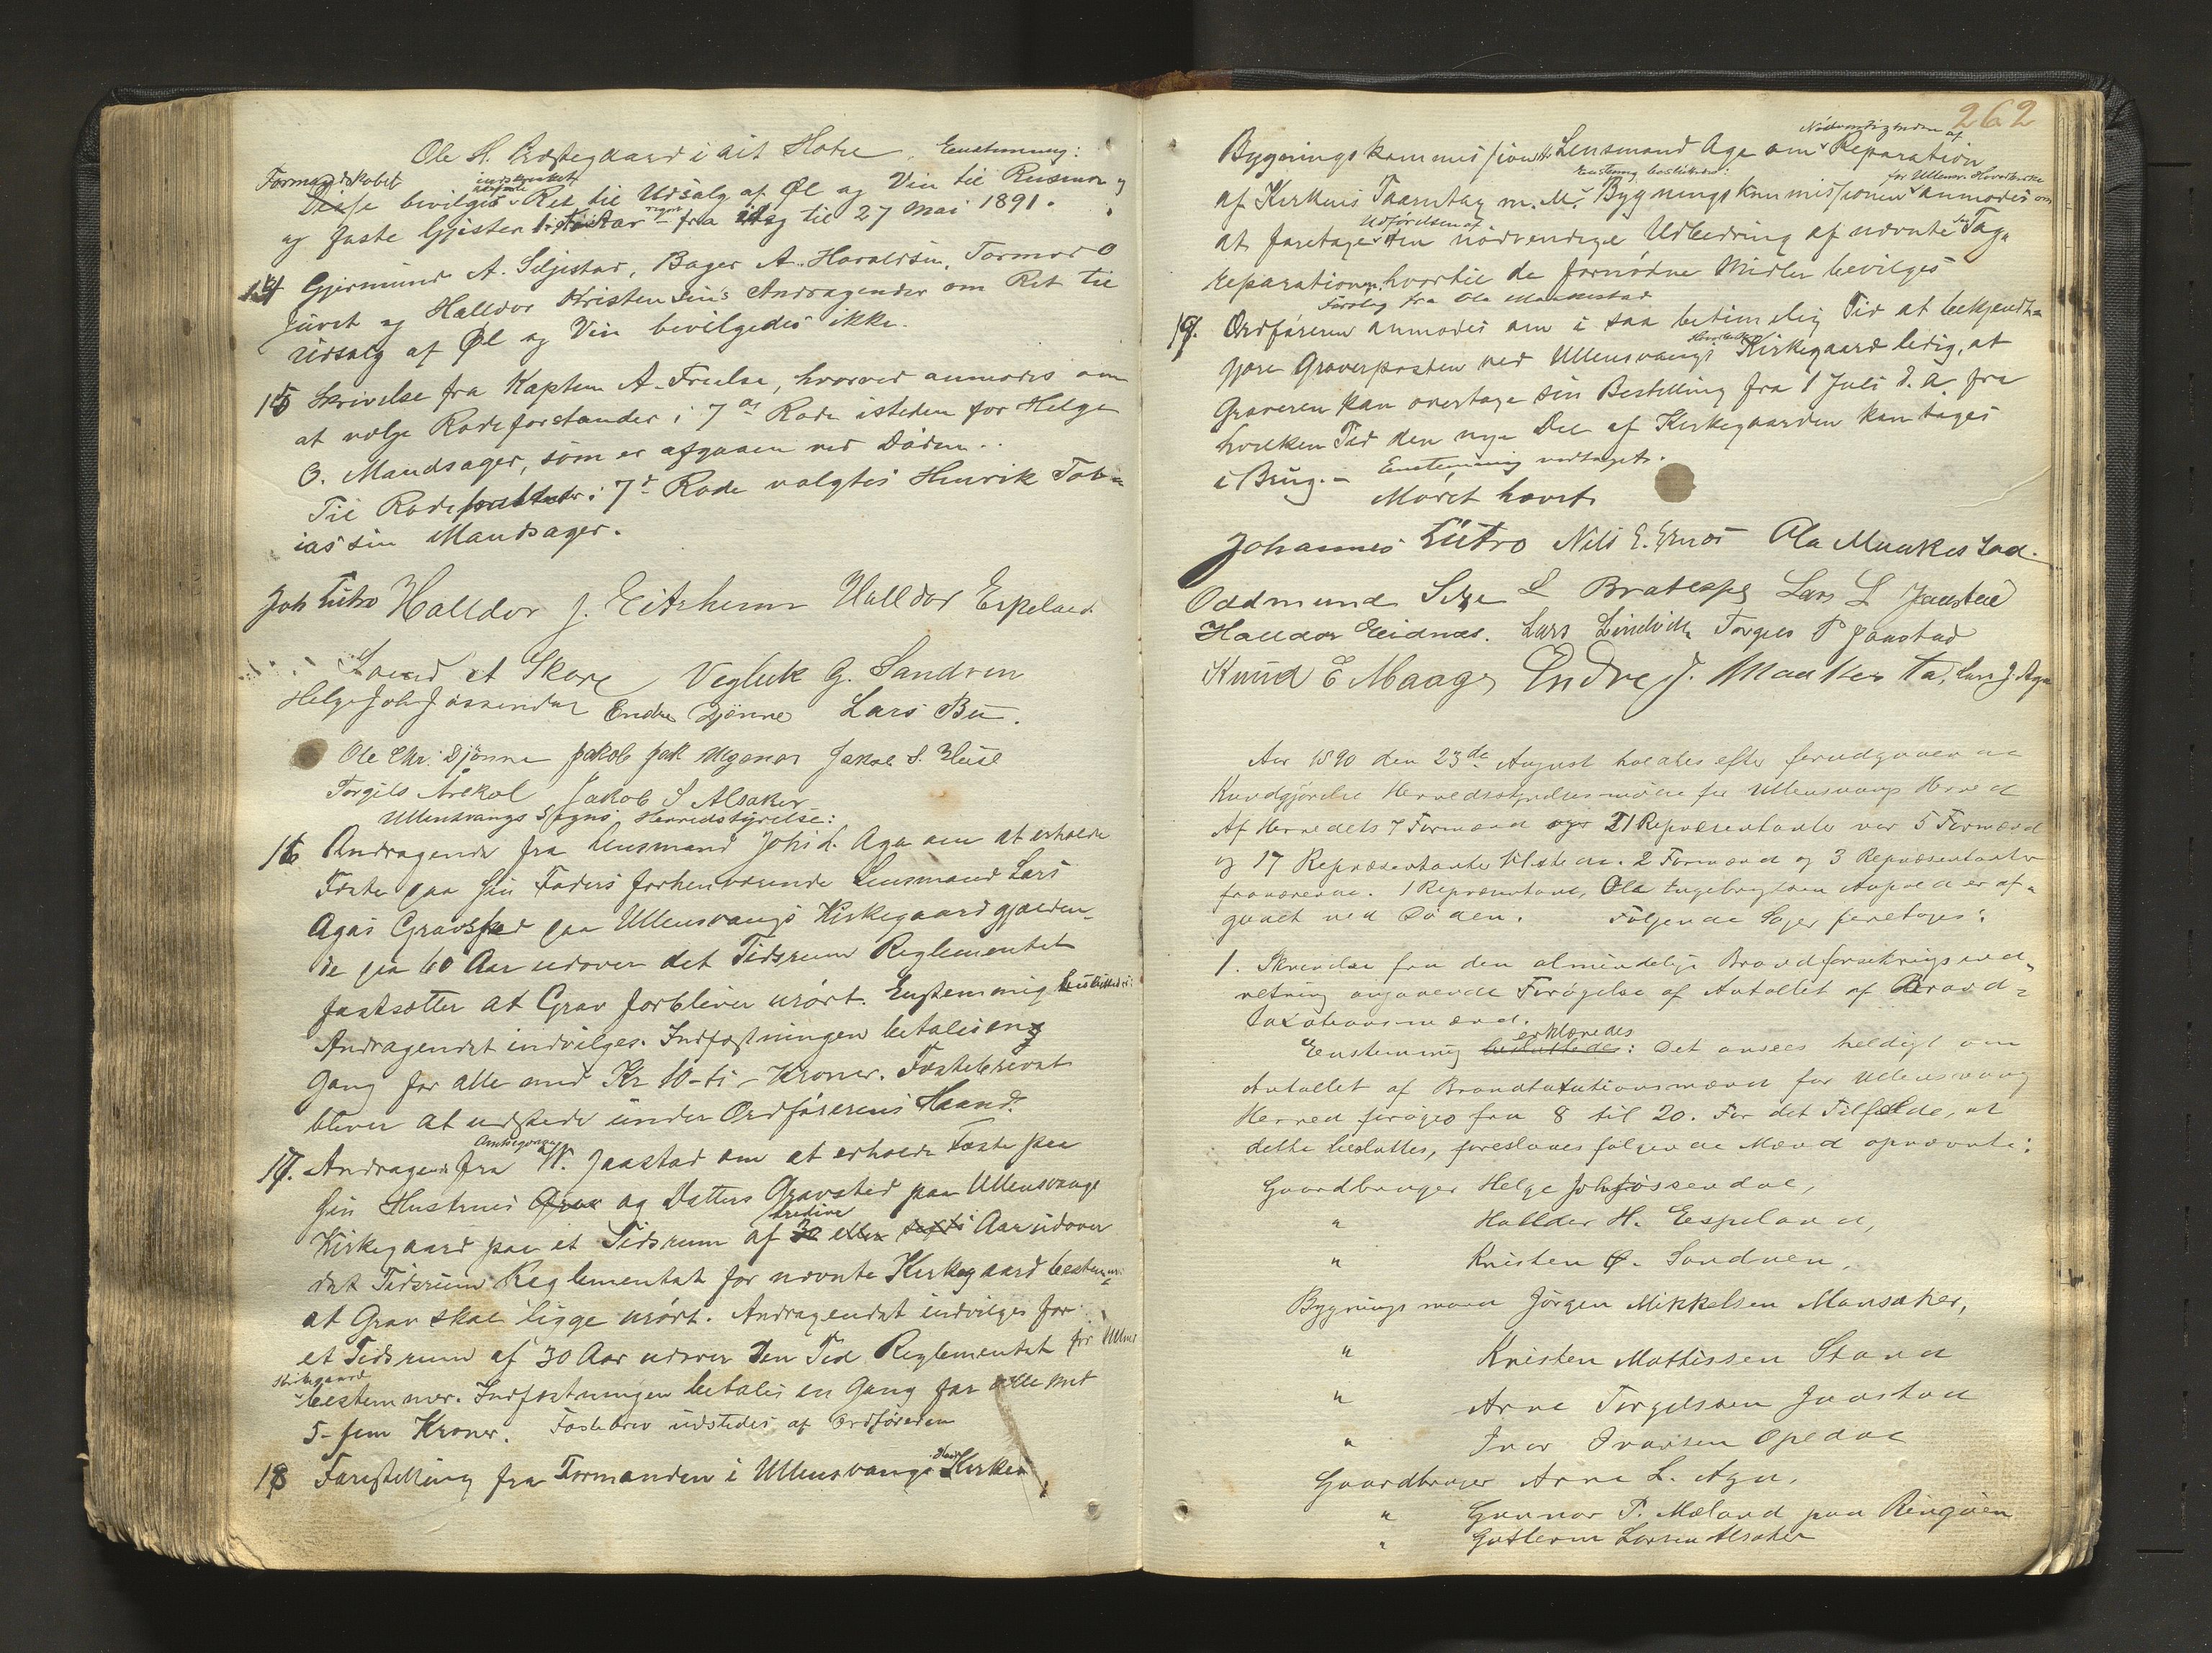 Ole H. Pristegaard i sit Hotel. Enstemmig:
Formandskabet
indskrænket
Disse bevilges Ret til Udsalg af Øl og Vin til Reisende og
og faste Gjester 1 et Aar regnet fra idag til 27 Mai 1891.
14 Gjermund A. Seljestad, Bager A. Haraldsen, Tormod O
Jüvet og Halldor Kristensens Andragender om Ret til
Udsalg af Øl og Vin bevilgedes ikke.
15 Skrivelse fra Kaptein A. Frielse, hvorved anmodes om
at vælge Rodeforstander i 7de Rode isteden for Helge
O. Mandsager, som er afgaaen ved Døden.
Til Rodeforstander i 7de Rode valgtes Henrik Tob=
iassen Mandsager.
Joh Lütro Halldor J. Eitrheim Halldor Espeland
Svend A Skare Vegleik G. Sandven
Helge Joh Jøssendal Endre Djønne Lars Bu.
Ole Chr. Djønne Jakob Jak Maganes Jakob S. Huse
Torgils Årekol Jakob S Alsaker
Ullensvangs Sogns Herredstyrelse:
16 Andragende fra Lensmand Johs L. Aga om at erholde
Fæste paa sin Faders forhenværende Lensmand Lars
Agas Gravsted paa Ullensvangs Kirkegaard gjælden-
de paa 60 Aar udover det Tidsrum Reglementet
fastsætter at Grav forbliver urørt. Enstemmig besluttedes:
Andragendet indvilges. Indfæstningen betales en
Gang for alle med Kr 10 - ti - Kroner. Fæstebrevet
bliver at udstede under Ordførerens Haand.
Amtsgonge
17. Andragende fra W. Jaastad om at erholde Fæste paa
sin Hustrues Grav og Datters Gravsted paa Ullensvangs
tredive
Kirkegaard paa et Tidsrum af 30 eller sexti Aar udover
det Tidsrum Reglementet for nævnte Kirkegaard bestemmer
at Grav skal ligge urørt. Andragendet indvilges for
et Tidsrum af 30 Aar udover den Tid Reglementet for Ullens
Kirkegaard
bestemmer. Indfæstningen betales en Gang for alle med
5 - fem Kroner. Fæstebrev udstedes af Ordføreren
18 Forestilling fra Formanden i Ullensvangs Hoved Kirkes
262
Nødvendigheden af
Bygningskommission Hr. Lensmand Aga om Reparation
Enstemmig besluttedes: for Ullensv. Hovedkirke
af Kirkens Taarntag m. M. Bygningskommissionen anmodes om
Udførelsen af
at foretage den nødvendige Udbedring af nævnte Tag=
reparationen, hvortil de fornødne Midler bevilges
Forslag fra Ola Maakestad
19. Ordføreren anmodes om i saa betimelig Tid at bekjendt=
Hovedkirkes
gjøre Graverposten ved Ullensvangs Kirkegaard ledig, at
Graveren kan overtage sin Bestilling fra 1 Juli d. A fra
hvilken Tid den nye Del af Kirkegaarden kan tages
i Brug. - Enstemmig vedtaget.
Mødet hævet.
Johannes Lütro Nils E. Ernes Ola Maakestad.
Oddmund Selje L Bratespe Lars L Jaastad
Halldor Eidnes. Lars Lindvik Torgils P Jaastad
Knud E Maage Endre J. Maakesta, Lars J. Aga
Aar 1890 den 23de August holdtes efter forudgaaende
Kundgjørelse Herredsstyrelsesmøde for Ullensvang Herred
Af Herredets 7 Formænd og 21 Repræsentanter var 5 Formænd
og 17 Repræsentanter tilstede. 2 Formænd og 3 Repræsentanter
fraværende. 1 Repræsentant, Ola Engebrigtsen Aapold er af=
gaaet ved Døden. Følgende Sager foretoges:
1. Skrivelse fra den almindelige Brandforsikringsind=
retning angaaende Forøgelse af Antallet af Brand=
taxationsmænd.
erklæredes
Enstemmig besluttedes: Det ansees heldigt om
Antallet af Brandtaxationsmænd for Ullensvang
Herred forøges fra 8 til 20. For det Tilfælde, at
dette besluttes, foreslaaes følgende Mænd opnævnte:
Gaardbruger Helge Joh Jøssendal,
" Halldor H. Espeland,
" Kristen O. Sandven,
Bygningsmand Jørgen Mikkelsen Mansaker,
" Kristen Mattissen Stand
" Arne Torgilssen Jaastad
" Ivar Ivarsen Opedal
Gaardbruger Arne L. Aga,
" Gunnar T. Mæland paa Ringøen
" Guttorm Larsen Alsaker